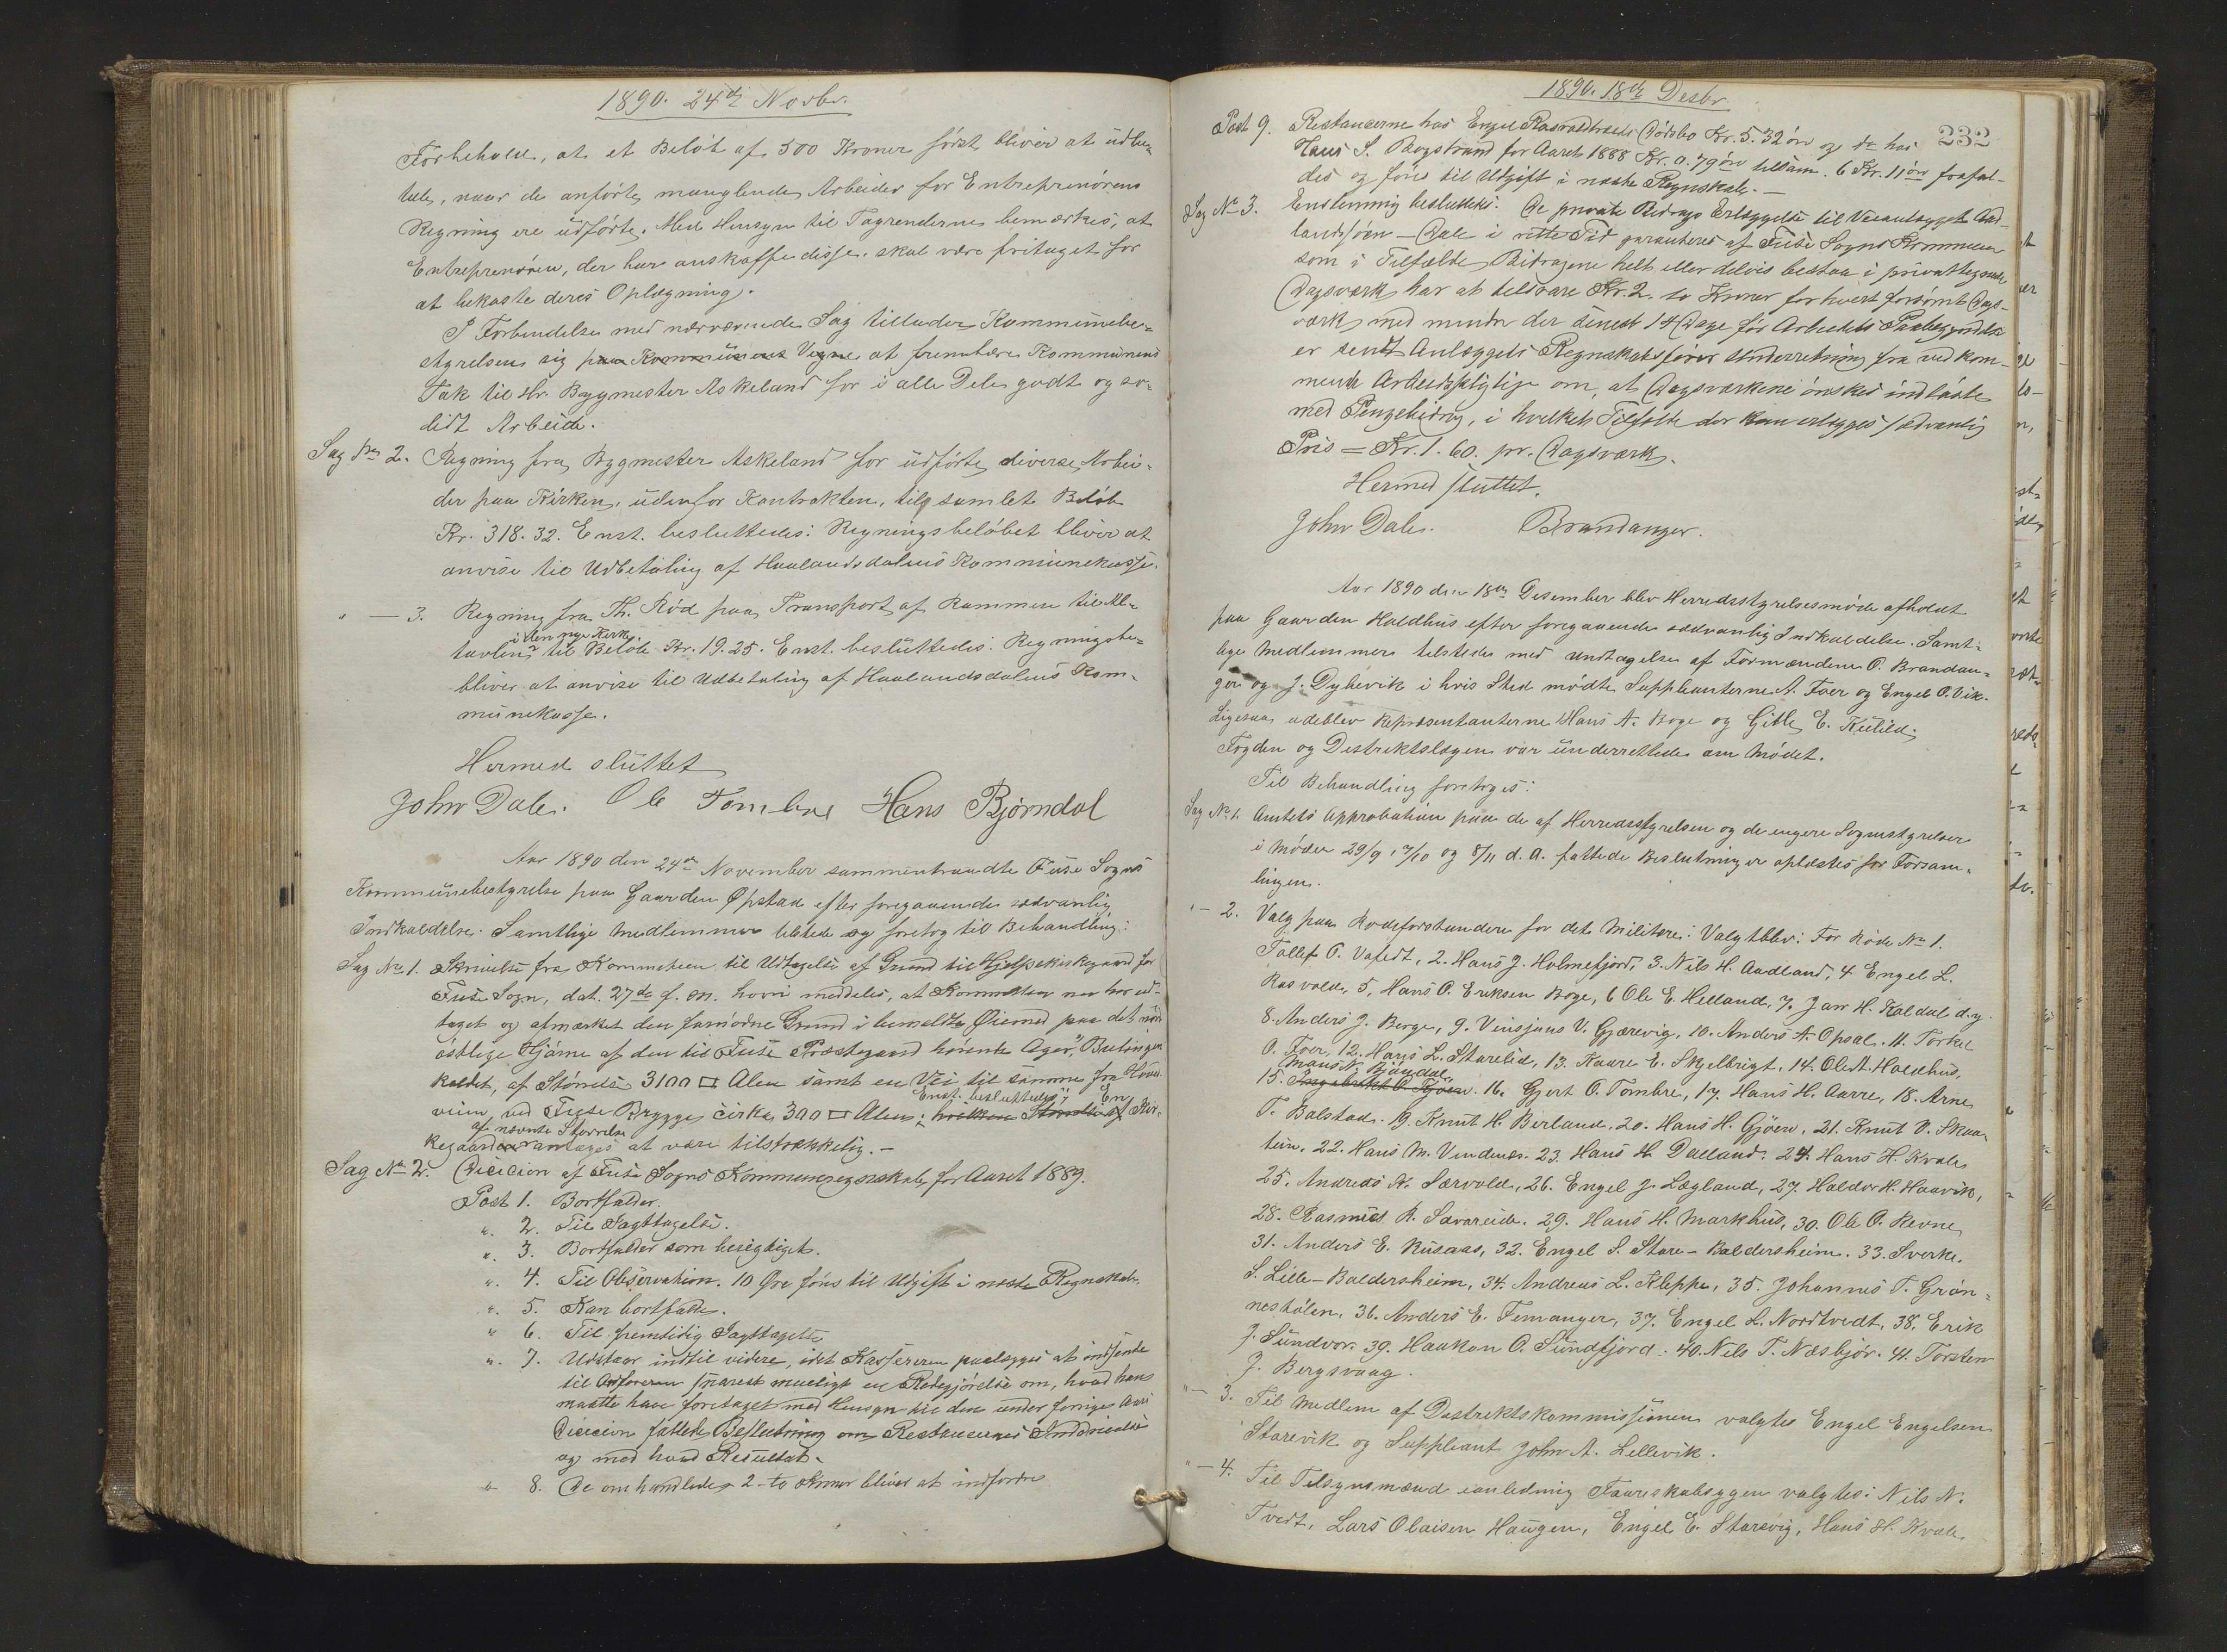 1890. 24de Novbr.
Forbehold, at et Beløb af 500 Kroner først bliver at udbe-
tale, naar de anførte manglende Arbeider for Entreprenørens
Regning ere udførte. Med Hensyn til Tagrenderne bemærkes, at
Entreprenøren, der har anskaffe disse, skal være fritaget for
at bekoste deres Oplægning.
I Forbindelse med nærværende Sag tillader Kommunebe-
styrelsen sig paa Kommunens Vegne at frembære Kommunens
Tak til Hr. Bygmester Askeland for i alle Dele godt og so-
lidt Arbeide.
Sag No 2. Regning fra Bygmester Askeland for udførte diverse Arbei-
der paa Kirken, udenfor Kontrakten, til samlet Beløb
Kr. 318.32. Enst. besluttedes: Regningsbeløbet bliver at
anvise til Udbetaling af Haalandsdalens Kommunekasse.
" — 3. Regning fra Th. Rød paa Transport af Rammen til Al-
tavlen i den nye Kirke til Beløb Kr. 19.25. Enst. besluttedes: Regningsbe-
bliver at anvise til Udbetaling af Haalandsdalens Kom-
munekasse.
Hermed sluttet
John Dale. Ole Tombre Hans Bjørndal
Aar 1890 den 24de November sammentraadte Fuse Sogns
Kommunebestyrelse paa Gaarden Opstad efter foregaaende sædvanlig
Indkaldelse. Samtlige Medlemmer tilstede og foretog til Behandling:
Sag No 1. Skrivelse fra Kommiteen til Udtagelse af Grund til Hjelpekirkegaard for
Fuse Sogn, dat. 27de f. M. hvori meddeles, at Kommiteen nu har ud-
taget og afmærket den fornødne Grund i bemeldte Øiemed paa det nord-
østlige Hjørne af den til Fuse Præstegaard hørende Ager, "Butingen
kaldet, af Størrelse 3100 □ Alen samt en Vei til samme fra Hoved-
veien, ved Fuse Brygge cirka 300 □ Alen; Enst. besluttedes: En hvilken Størrelse af Kir-
kegaarden af nævnte Størrelse antages at være tilstrækkelig. —
Sag No 2. Decision af Fuse Sogns Kommuneregnskab for Aaret 1889.
Post 1. Bortfalder.
" 2. Til Iagttagelse.
" 3. Bortfalder som berigtiget.
" 4. Til Observation. 10 Øre føres til Udgift i næste Regnskab.
" 5. Kan bortfalde.
" 6. Til fremtidig Iagttagelse
" 7. Udstaar indtil videre, idet Kassereren paalægges at indsende
til Ordføreren snarest mueligt en Redegjørelse om, hvad han
maatte have foretaget med Hensyn til den under forrige Aars
Decision fattede Beslutning om Restancernes Inddrivelse
og med hvad Resultat.
" 8. De omhandlede 2 - to Kroner bliver at indfordre
1890. 18de Desbr.
232
Post 9. Restancerne hos Engel Rasvaldsæds Dødsbo Kr. 5.32 øre og do hos
Hans S. Bogstrand for Aaret 1888 Kr. 0.79 øre tilsam. 6 Kr. 11 øre frafal-
des og føres til Udgift i næste Regnskab. —
Sag No 3. Enstemmig besluttedes: De private Bidrags Erlæggelse til Veianlægget Aad-
landsjøen – Dale i rette Tid garanteres af Fuse Sogns Kommune
som i Tilfælde Bidragene helt eller delvis bestaa i
Dagsværk har at tilsvare Kr. 2. to Kroner for hvert forsømt Dags-
værk, med mindre der senest 14 Dage før Arbeidets Paabegyndelse
er sendt Anlæggets Regnskabsfører Underretning fra vedkom-
mende Arbeidspligtige om, at Dagsværkene ønskes indløste
med Pengebidrag, i hvilket Tilfælde der kun erlægges sædvanlig
Pris = Kr. 1.60. pr. Dagsværk.
Hermed sluttet.
John Dale. Brandanger.
Aar 1890 den 18de Desember blev Herredsstyrelsesmøde afholdt
paa Gaarden Holdhus efter foregaaende sædvanlig Indkaldelse. Samt-
lige Medlemmer tilstede med Undtagelse af Formændene O. Brandan-
ger og J. Dyhevik i hvis Sted mødte Suppleanterne A. Foer og Engel O. Vik.
Ligesaa udeblev Repræsentanterne Hans A. Boge og Gitle E. Kulild.
Fogden og Distriktslægen var underrettede om Mødet.
Til Behandling foretoges:
Sag No 1. Amtets Approbation paa de af Herredsstyrelsen og de engere Sognestyrelser
i Møder 29/9, 17/10 og 8/11 d. A. fattede Beslutninger oplæstes for Forsam-
lingen.
" — 2. Valg paa Rodeforstandere for det Militære: Valgt blev: For Rode No 1.
Tollef O. Vatedt, 2. Hans J. Holmefjord, 3. Nils H. Aadland, 4. Engel L.
Rasvalde, 5. Hans O. Eriksen Boge, 6 Ole E. Helland, 7. Jan H. Koldal d.y.
8. Anders J. Berge, 9. Vinsjans V. Gjærevig, 10. Anders A. Opsal. 11. Torkel
O. Foer, 12. Hans L. Starelid, 13. Kaare E. Skjelbrigt, 14. Ole A. Holdhus,
15. Mons N. Bjøndal Ingebrikt O. Gjøen. 16. Gjert O. Tombre, 17. Hans H. Aarre, 18. Arne
T. Balstad. 19. Knut H. Berland, 20. Hans H. Gjøen, 21. Knut O. Skaa-
tun, 22. Hans M. Vindenes. 23. Hans H. Dalland. 24. Hans H. Kvale
25. Andreas N. Sævold, 26. Engel J. Lægland, 27. Haldor H. Haavik,
28. Rasmus R. Sævareide. 29. Hans H. Markhus, 30. Ole O. Revne,
31. Anders E. Rusaas, 32. Engel S. Store-Baldersheim. 33. Sverke
S. Lille-Baldersheim, 34. Andreas L. Kleppe, 35. Johannes T. Grøn-
neshølen, 36. Anders E. Femanger, 37. Engel L. Nordtvedt, 38. Erik
J. Sundvor. 39. Haakon O. Sundfjord. 40. Nils T. Næsbjør. 41. Torsten
J. Bergsvaag.
" — 3. Til Medlem af Distriktskommissionen valgtes Engel Engelsen
Storevik og Suppleant John A. Lillevik.
" — 4. Til Tilsynsmænd ianledning Faareskabsygen valgtes: Nils N.
Tvedt, Lars Olaisen Haugen, Engel E. Storevig, Hans H. Kvale.